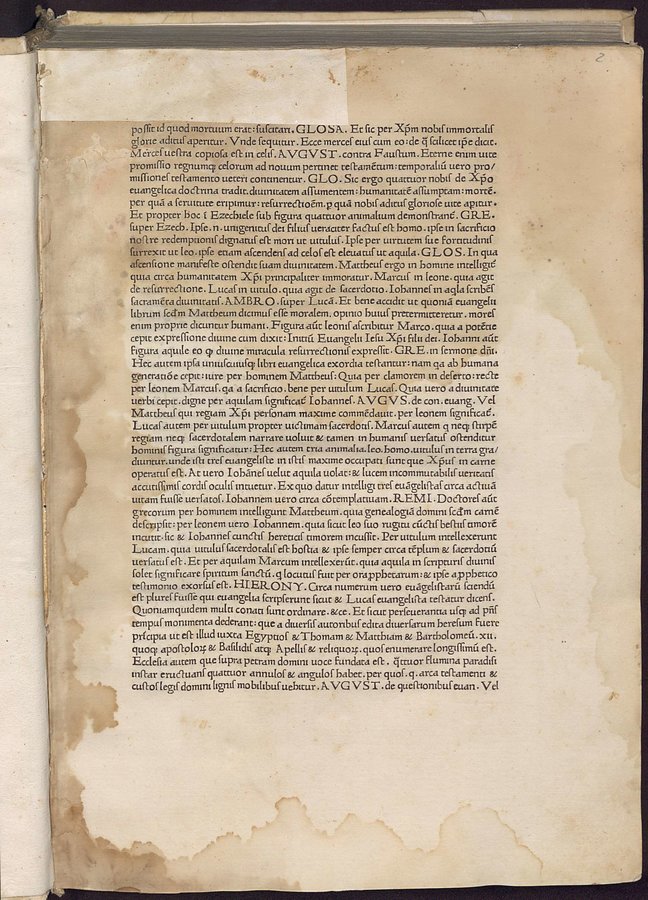 2
possit id quod mortuum erat: suscitari. GLOSA. Et sic per Xp̄m nobis immortalis
glorie aditus aperitur. Vnde sequitur. Ecce merces eius cum eo: de q̄ scilicet ip̄e dicit.
Merces vestra copiosa est in celis. AVGVST. contra Faustum. Eterne enim uite
promissio regnumq; celorum ad nouum pertinet testamētum: temporaliū uero pro/
missiones testamento ueteri continentur. GLO. Sic ergo quattuor nobis de Xp̄o
euangelica doctrina tradit. diuinitatem assumentem: humanitatē assumptam: mortē.
per quā a seruitute eripimur: resurrectionē. p quā nobis aditus gloriose uite apitur.
Et propter hoc ī Ezechiele sub figura quattuor animalium demonstranť. GRE.
super Ezech. Ipse .n. unigenitus dei filius ueraciter factus est homo. ipse in sacrificio
nostre redemptionis dignatus est mori ut uitulus. Ipse per uirtutem sue fortitudinis
surrexit ut leo. ipse etiam ascendens ad celos est eleuatus ut aquila. GLOS. In qua
ascensione manifeste ostendit suam diuinitatem. Mattheus ergo in homine intelligiť
quia circa humanitatem Xp̄i principaliter immoratur. Marcus in leone. quia agit
de resurrectione. Lucas in uitulo. quia agit de sacerdotio. Iohannes in aq̄la scribēs
sacramēta diuinitatis. AMBRO. super Lucā. Et bene accidit ut quoniā euangelii
librum scd̄m Mattheum dicimus esse moralem. opinio huius pretermitteretur. mores
enim proprie dicuntur humani. Figura aūt leonis ascribitur Marco. quia a potētie
cepit expressione diuine cum dixit: Initiū Euangelii Iesu Xp̄i filii dei. Iohanni aūt
figura aquile eo q̄ diuine miracula resurrectionis expressit. GRE. in sermone dn̄i.
Hec autem ipsa uniuscuiusq; libri euangelica exordia testantur: nam qa ab humana
generatiōe cepit: iure per hominem Mattheus: Quia per clamorem in deserto: recte
per leonem Marcus. qa a sacrificio. bene per uitulum Lucas. Quia uero a diuinitate
uerbi cepit. digne per aquilam significať Iohannes. AVGVS. de con. euang. Vel
Mattheus qui regiam Xp̄i personam maxime commēdauit. per leonem significať.
Lucas autem per uitulum propter uictimam sacerdotis. Marcus autem q neq; stirpē
regiam neq; sacerdotalem narrare uoluit & tamen in humanis uersatus ostenditur
hominis figura significatur: Hec autem tria animalia. leo. homo. uitulus in terra gra/
diuntur. unde isti tres euangeliste in istis maxime occupati sunt que Xp̄us in carne
operatus est. At uero Iohānes uelut aquila uolat: & lucem incommutabilis ueritatis
accutissimis cordis oculis intuetur. Ex quo datur intelligi tres euangelistas circa actiuā
uitam fuisse uersatos. Iohannem uero circa cōtemplatiuam. REMI. Doctores aūt
grecorum per hominem intelligunt Mattheum. quia genealogiā domini scd̄m carnē
descripsit: per leonem uero Iohannem. quia sicut leo suo rugitu cūctis bestiis timorē
incutit. sic & Iohannes cunctis hereticis timorem incussit. Per uitulum intellexerunt
Lucam. quia uitulus sacerdotalis est hostia & ipse semper circa tēplum & sacerdotiū
uersatus est. Et per aquilam Marcum intellexerūt. quia aquila in scripturis diuinis
solet significare spiritum sanctū. q locutus fuit per ora pphetarum: & ipse a pphetico
testimonio exorsus est. HIERONY. Circa numerum uero euāgelistarū sciendū
est plures fuisse qui euangelia scripserunt sicut & Lucas euangelista testatur dicens.
Quoniamquidem multi conati sunt ordinare. &ce. Et sicut perseuerantia usq; ad pn̄s
tempus monumenta dederant: que a diuersis autoribus edita diuersarum heresum fuere
principia ut est illud iuxta Egyptios & Thomam & Matthiam & Bartholomeū. xii.
quoq; apostoloꝝ & Basilidis atq; Apellis & reliquoꝝ. quos enumerare longissimū est.
Ecclesia autem que supra petram domini uoce fundata est. q̄ttuor flumina paradisi
instar eructans quattuor annulos & angulos habet. per quos .q. arca testamenti &
custos legis domini lignis mobilibus uehitur. AVGVST. de questionibus euan. Vel